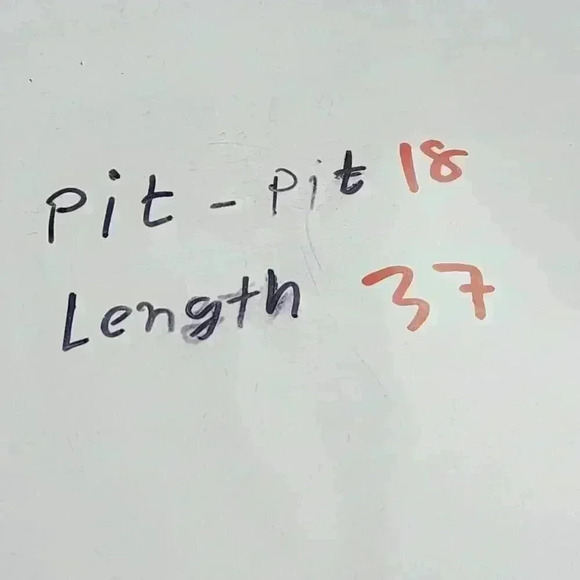 Pit - Pit 18
Length 37